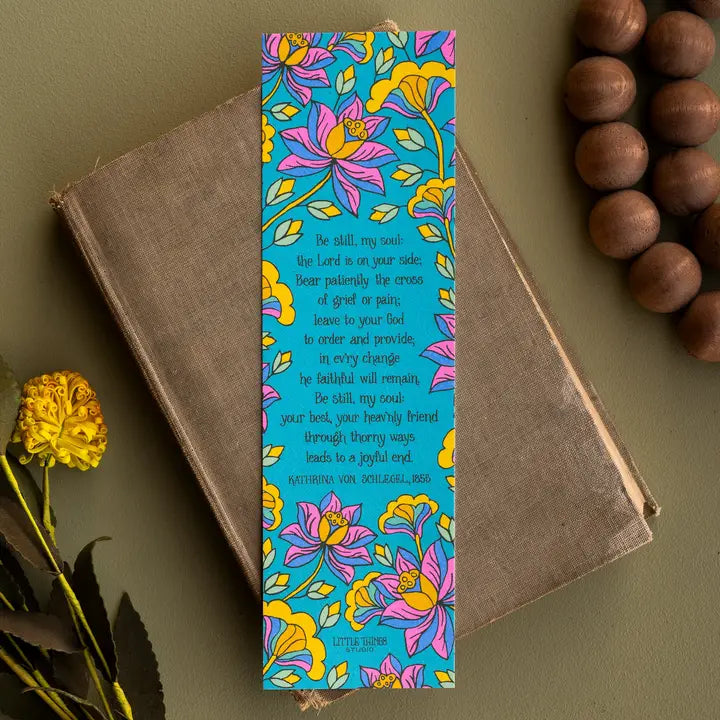 Be still, my soul:
the Lord is on your side;
Bear patiently the cross
of grief or pain;
leave to your God
to order and provide;
in ev'ry change
he faithful will remain.
Be still, my soul:
your best, your heav'nly friend
through thorny ways
leads to a joyful end.
KATHRINA VON SCHLEGEL, 1855
LITTLE THINGS
STUDIO